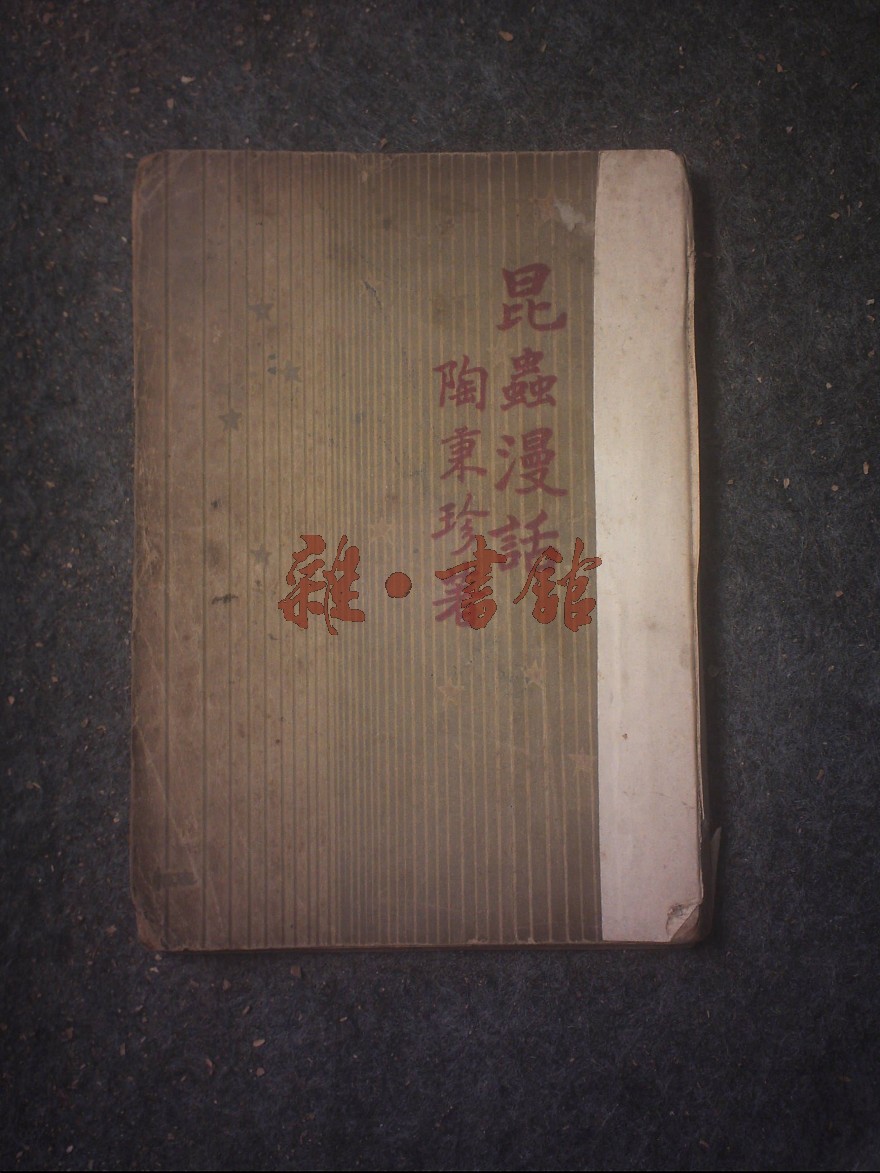 昆蟲漫話
陶秉珍著
雜·書館